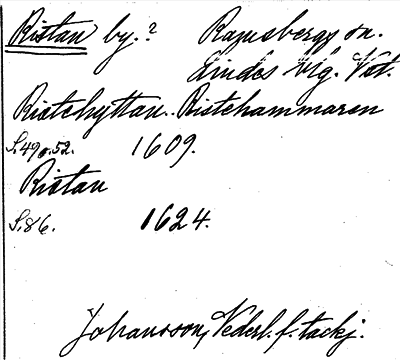 Ristan by.? Ramsbergs sn.
Lindes hg. Vst.
Ristehyttan. Ristehammaren
S. 49 o. 52. 1609.
Ristan
S. 86. 1624.
Johansson, Nederl. f. tackj.